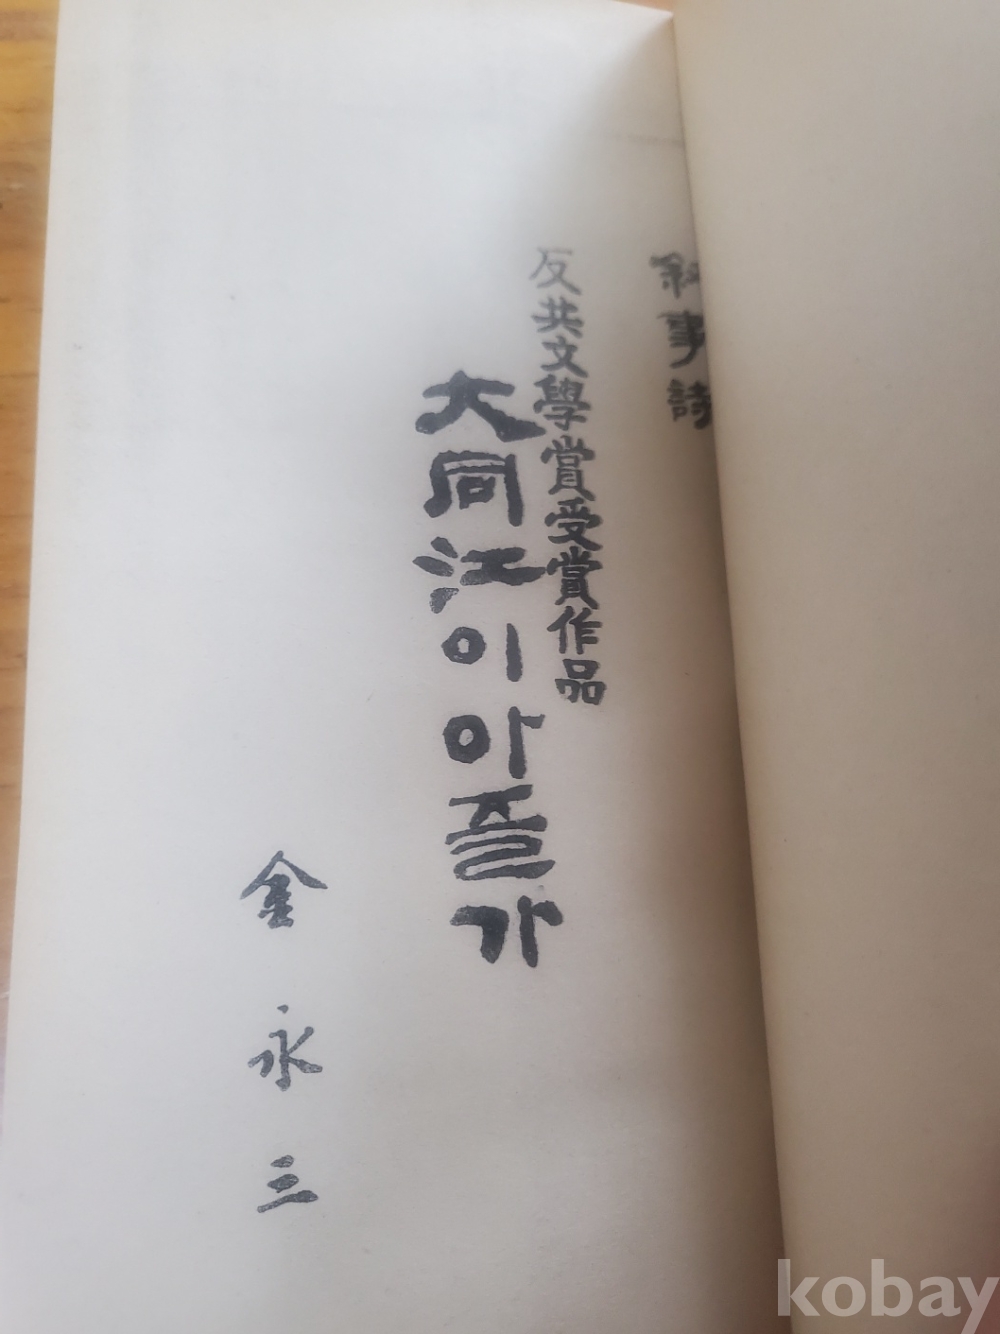 敍事詩
反共文學賞受賞作品
大同江이아즐가
金永三
kobay